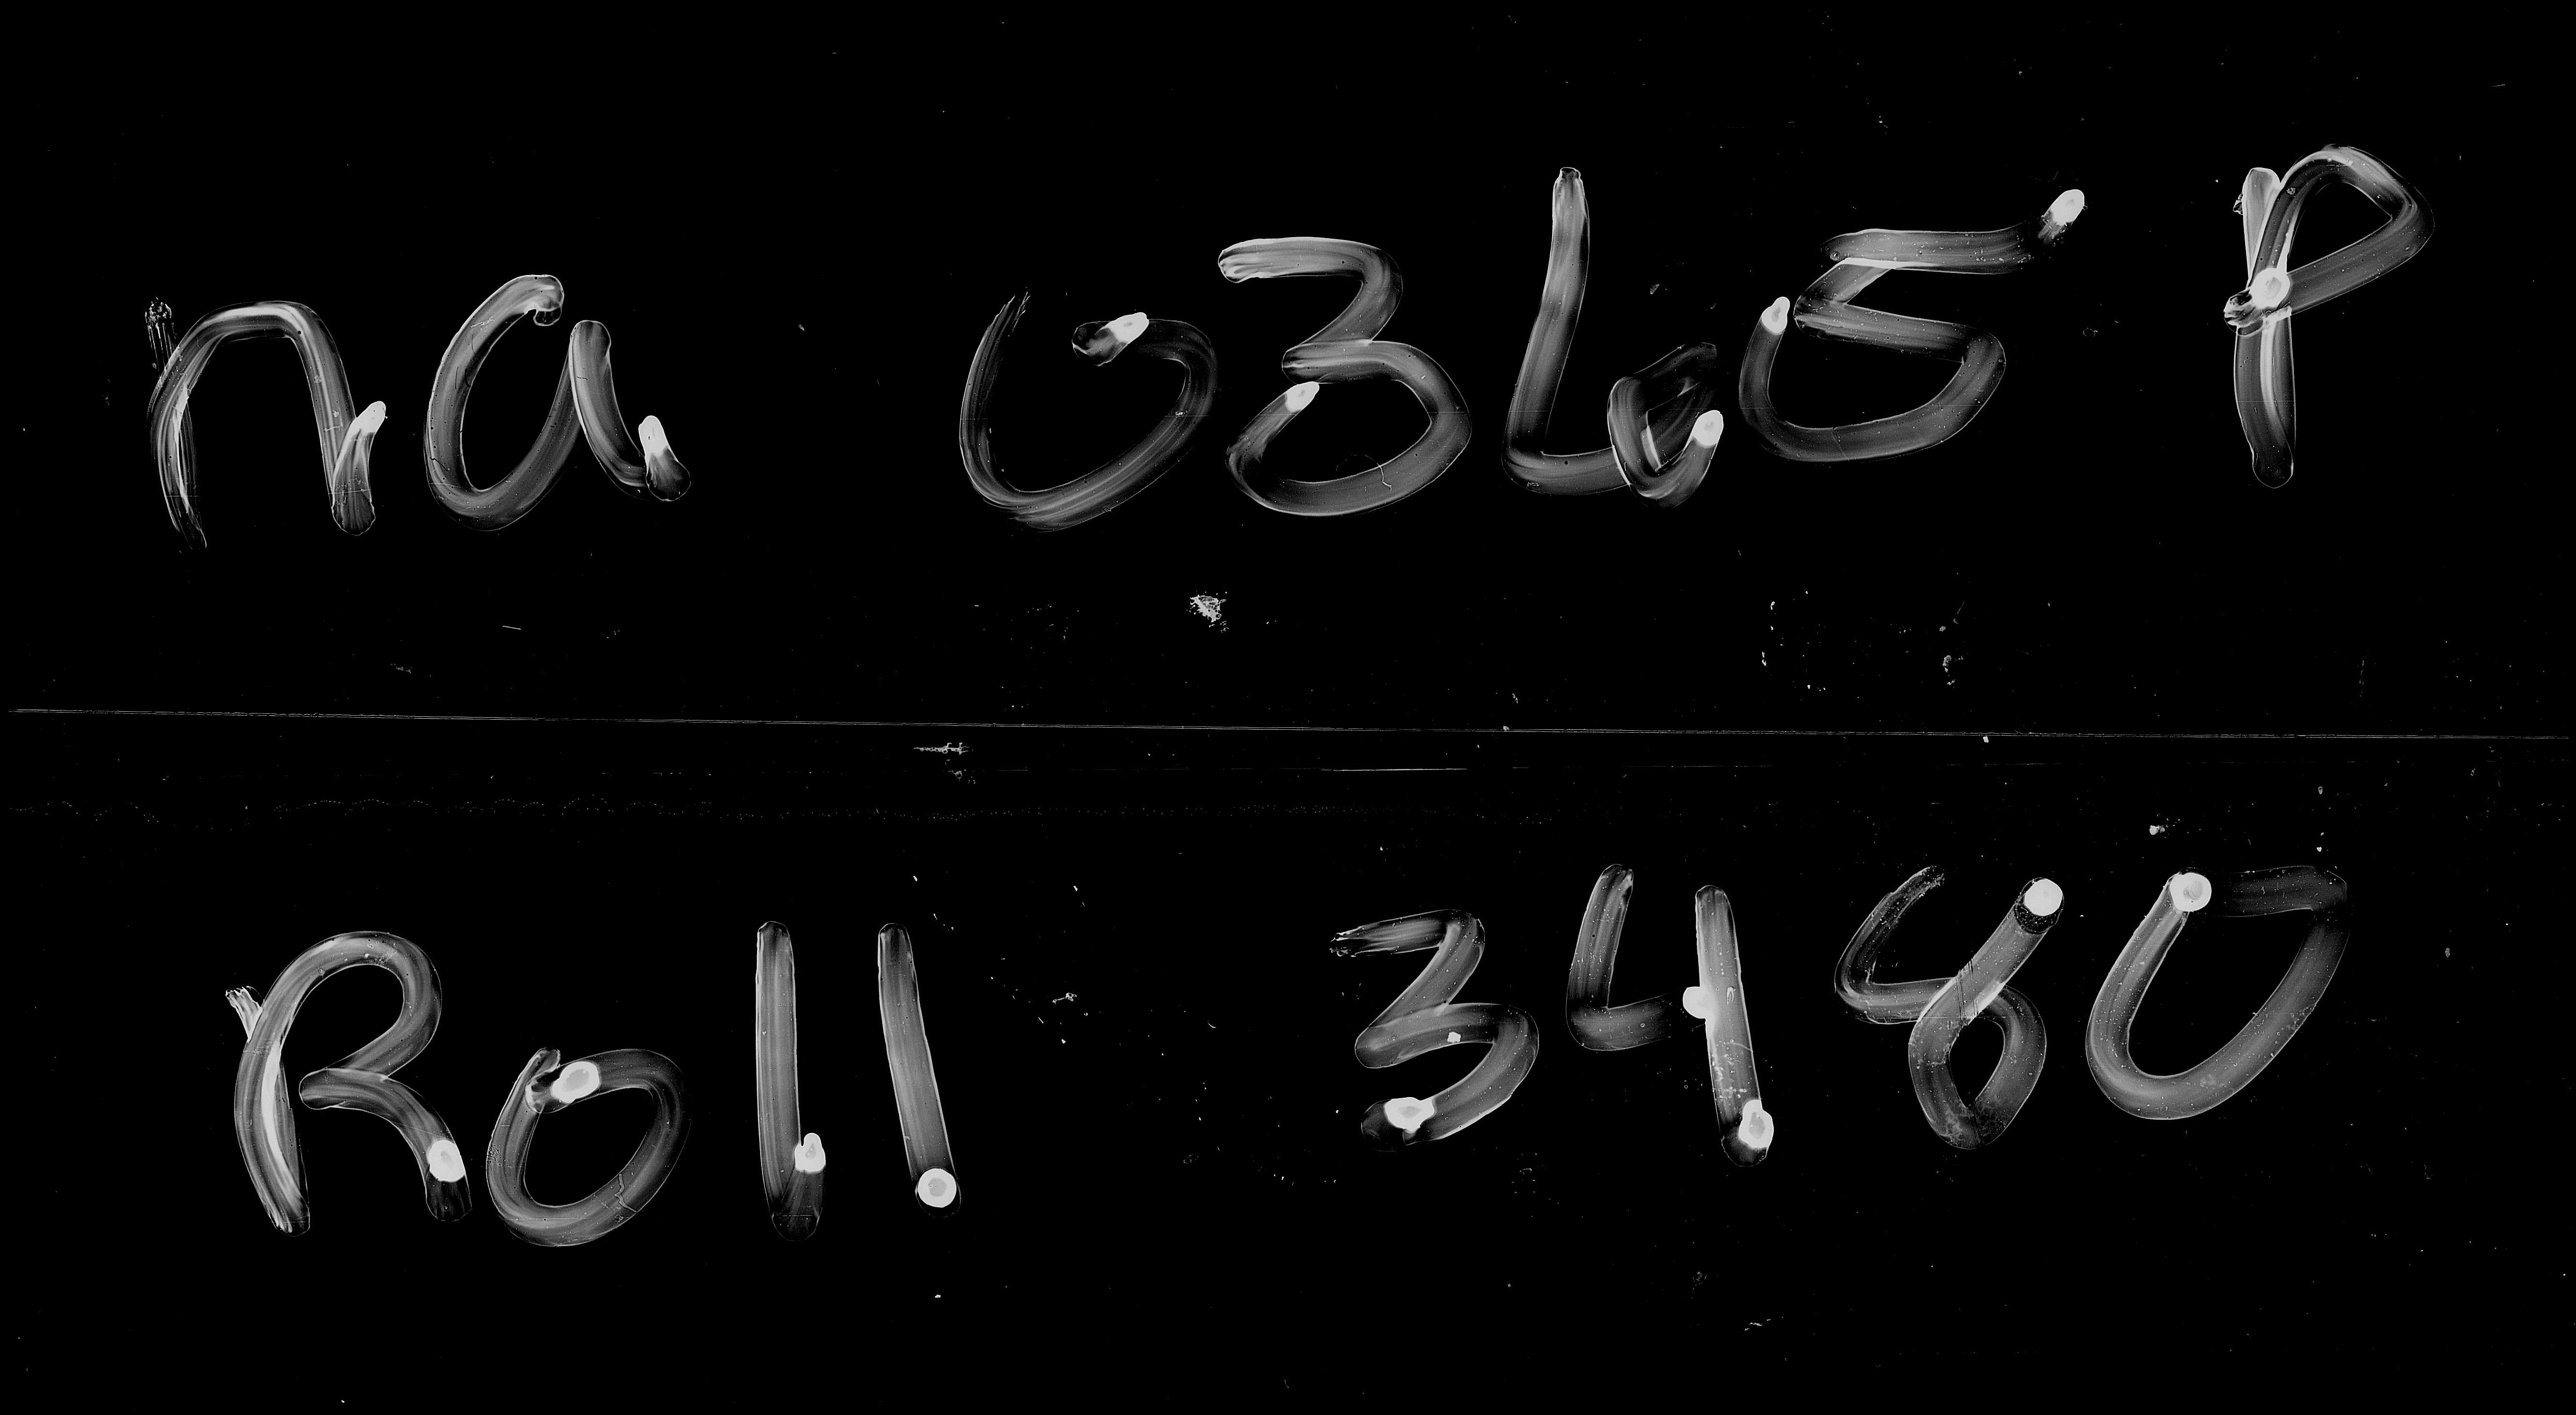 na 0365 P
Roll 3480